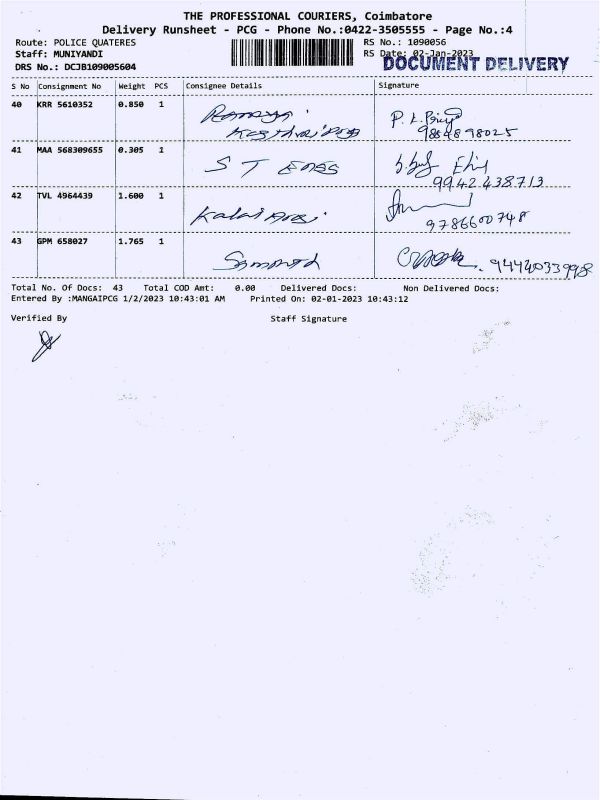 THE PROFESSIONAL COURIERS, Coimbatore
Delivery Runsheet - PCG - Phone No.:0422-3505555 - Page No.:4
Route: POLICE QUATERES RS No.: 1090056
Staff: MUNIYANDI RS Date: 02-Jan-2023
DOCUMENT DELIVERY
DRS No.: DCJB109005604
S No Consignment No Weight PCS Consignee Details Signature
40 KRR 5610352 0.850 1
9854898025
41 MAA 568309655 0.305 1 S T
9942438713
42 TVL 4964439 1.600 1 Kalai
9786600748
43 GPM 658027 1.765 1
9444033998
Total No. Of Docs: 43 Total COD Amt: 0.00 Delivered Docs: Non Delivered Docs:
Entered By :MANGAIPCG 1/2/2023 10:43:01 AM Printed On: 02-01-2023 10:43:12
Verified By Staff Signature